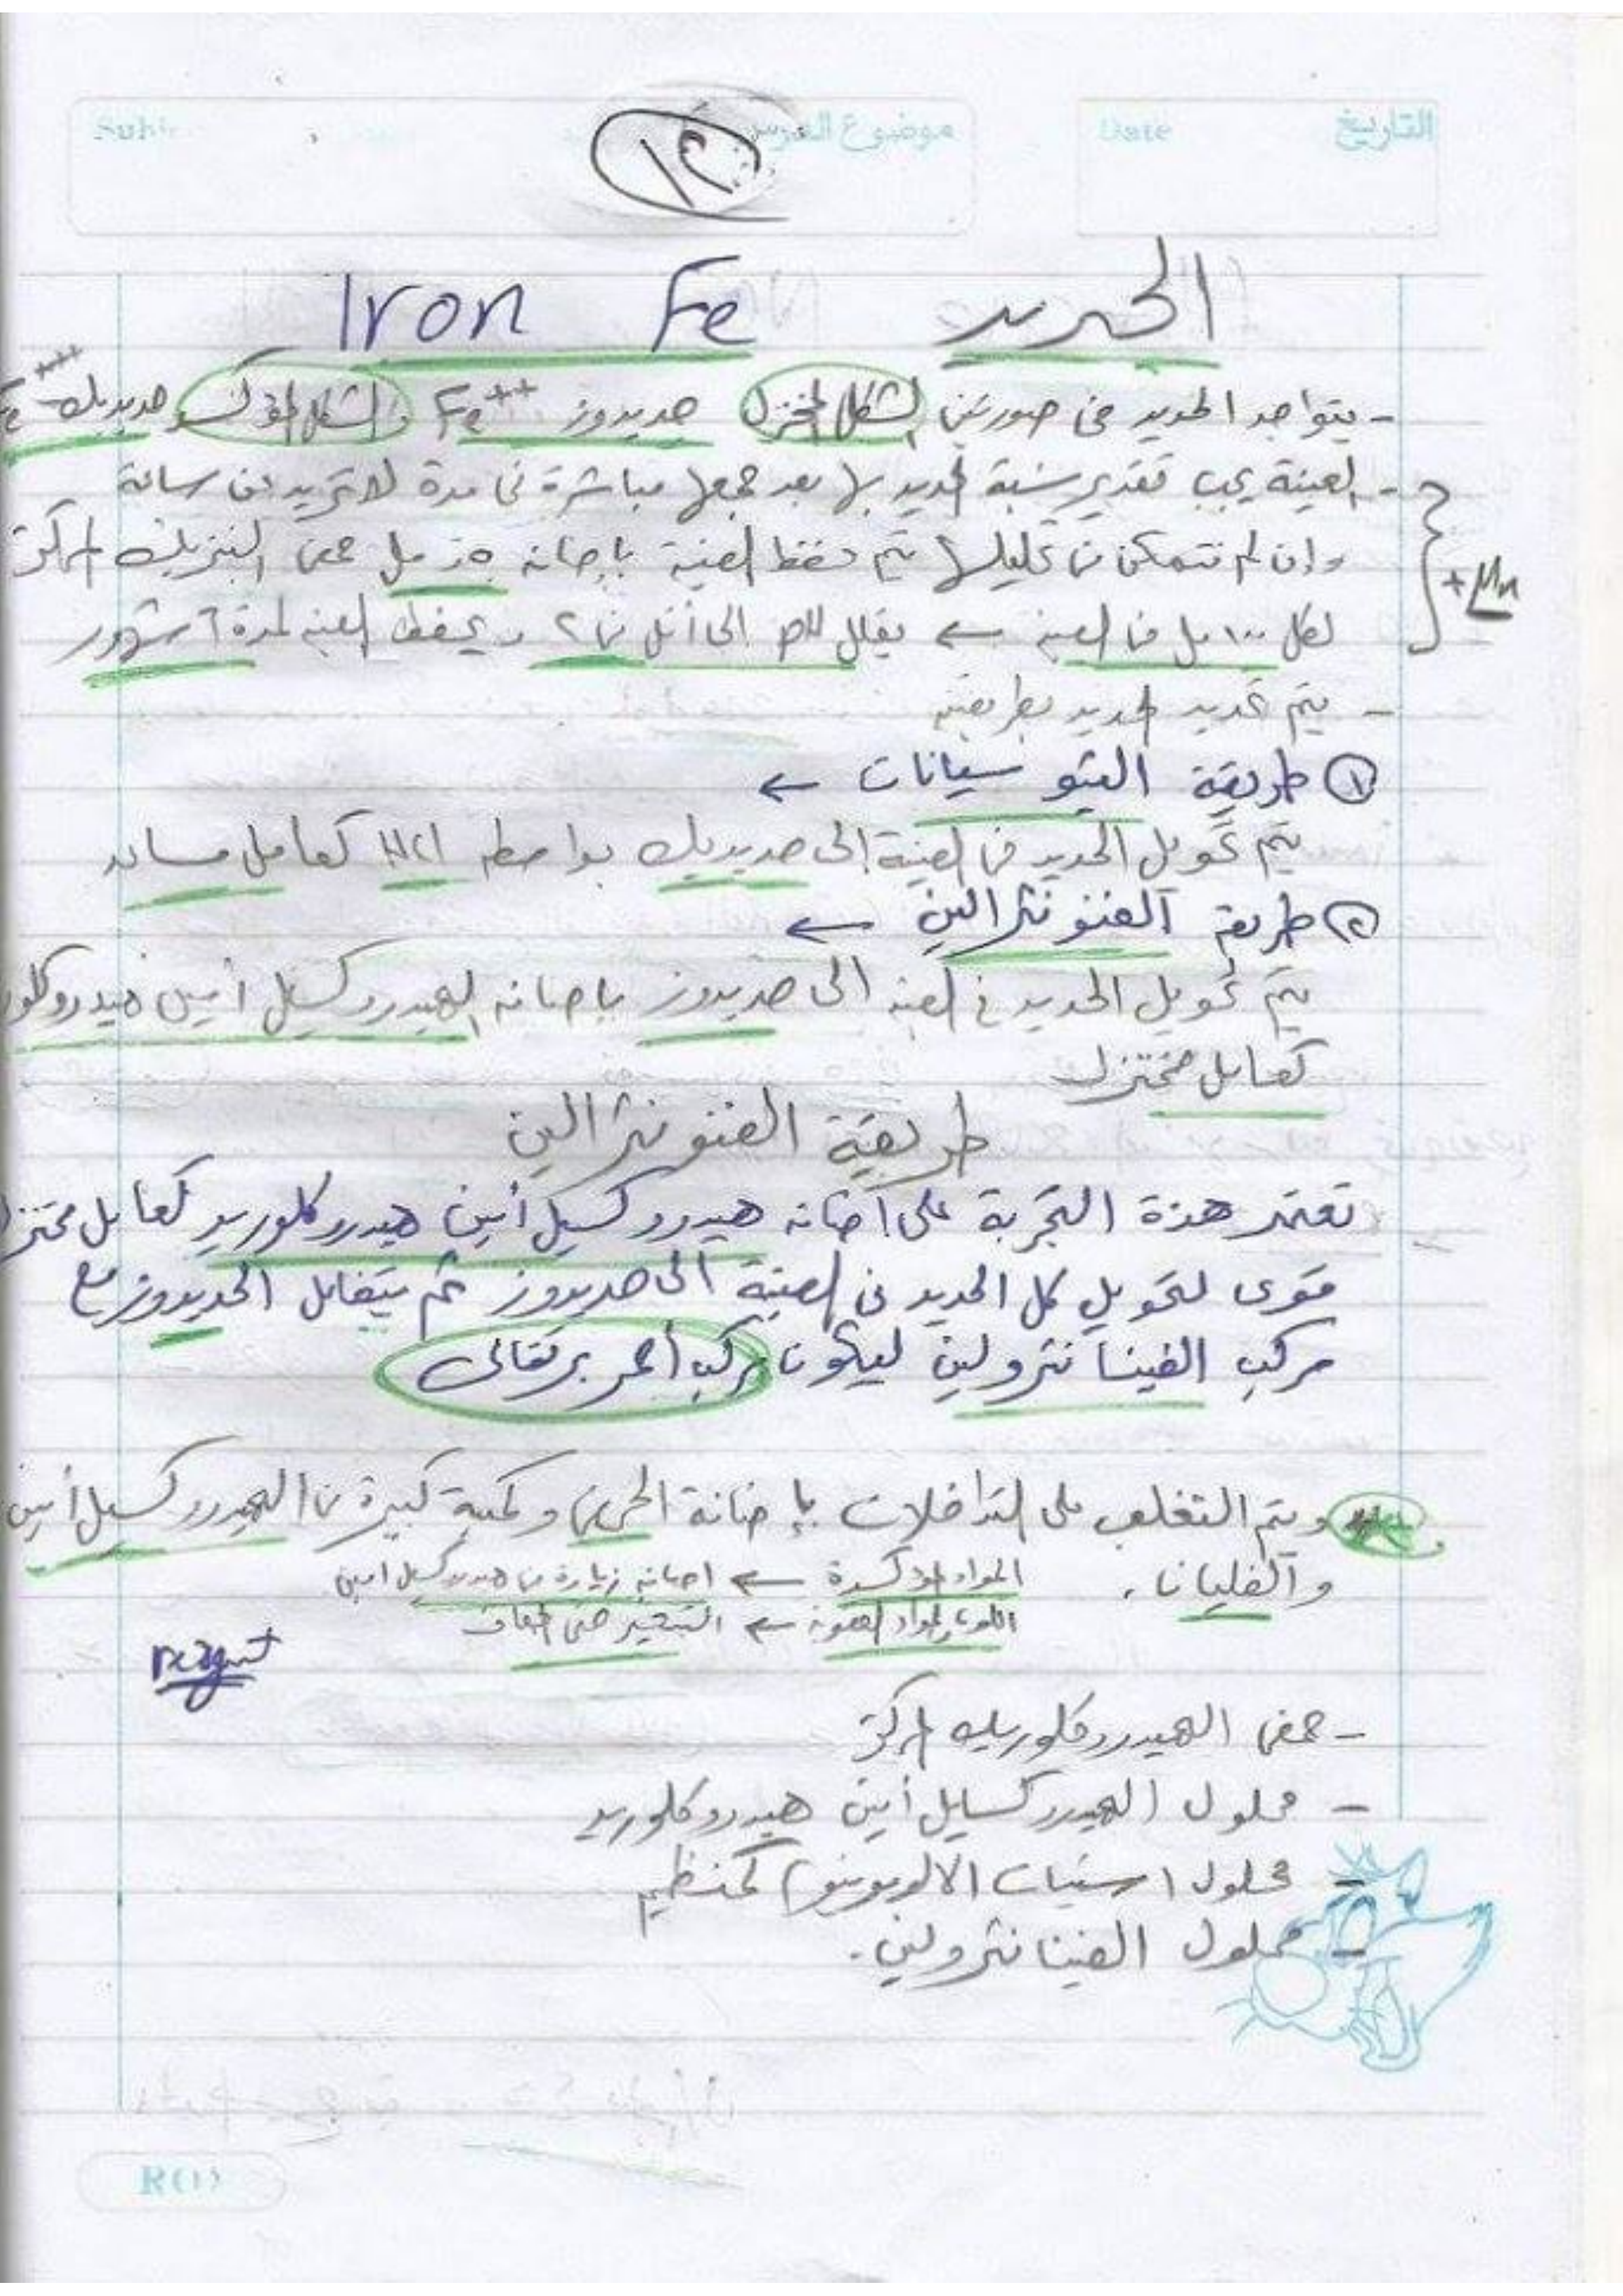 التاريخ Date موضوع الدرس
١٢
الحديد Iron Fe
- يتواجد الحديد فى صورتين الشكل المختزل حديدوز Fe++ والشكل المؤكسد حديديك Fe+++
- العينة يجب تقدير نسبة الحديد بها بعد جمعها مباشرة فى مدة لا تزيد عن ساعة
وإن لم نتمكن من تحليلها يتم حفظ العينة بإضافة ٠,٥ مل حمض النيتريك المركز
+ Mn
لكل ١٠٠ مل من العينة ← يقلل الـ pH الى أقل من ٢ ويحفظ العينة لمدة ٦ شهور
- يتم تحديد الحديد بطريقتين
① طريقة الثيوسيانات ←
يتم تحويل الحديد فى العينة إلى حديديك بواسطة HCl كعامل مساعد
② طريقة الفننونثرالين ←
يتم تحويل الحديد فى العينة الى حديدوز بإضافة الهيدروكسيل أمين هيدروكلور
كعامل مختزل
طريقة الفننونثرالين
تعتمد هذة التجربة على اضافة هيدروكسيل أمين هيدروكلوريد كعامل مختزل
قوى لتحويل كل الحديد فى العينة الى حديدوز ثم يتفاعل الحديدوز مع
مركب الفينانثرولين ليكون مركب أحمر برتقالى
ويتم التغلب على التداخلات بإضافة الحمض وكمية كبيرة من الهيدروكسيل أمين
والغليان.
المواد المؤكسدة ← اضافة زيادة من هيدروكسيل امين
اللون والمواد العضوية ← التبخير حتى الجفاف
reagent
- حمض الهيدروكلوريك المركز
- محلول الهيدروكسايل أمين هيدروكلوريد
- محلول اسيتات الامونيوم كمنظم
- محلول الفينانثرولين.